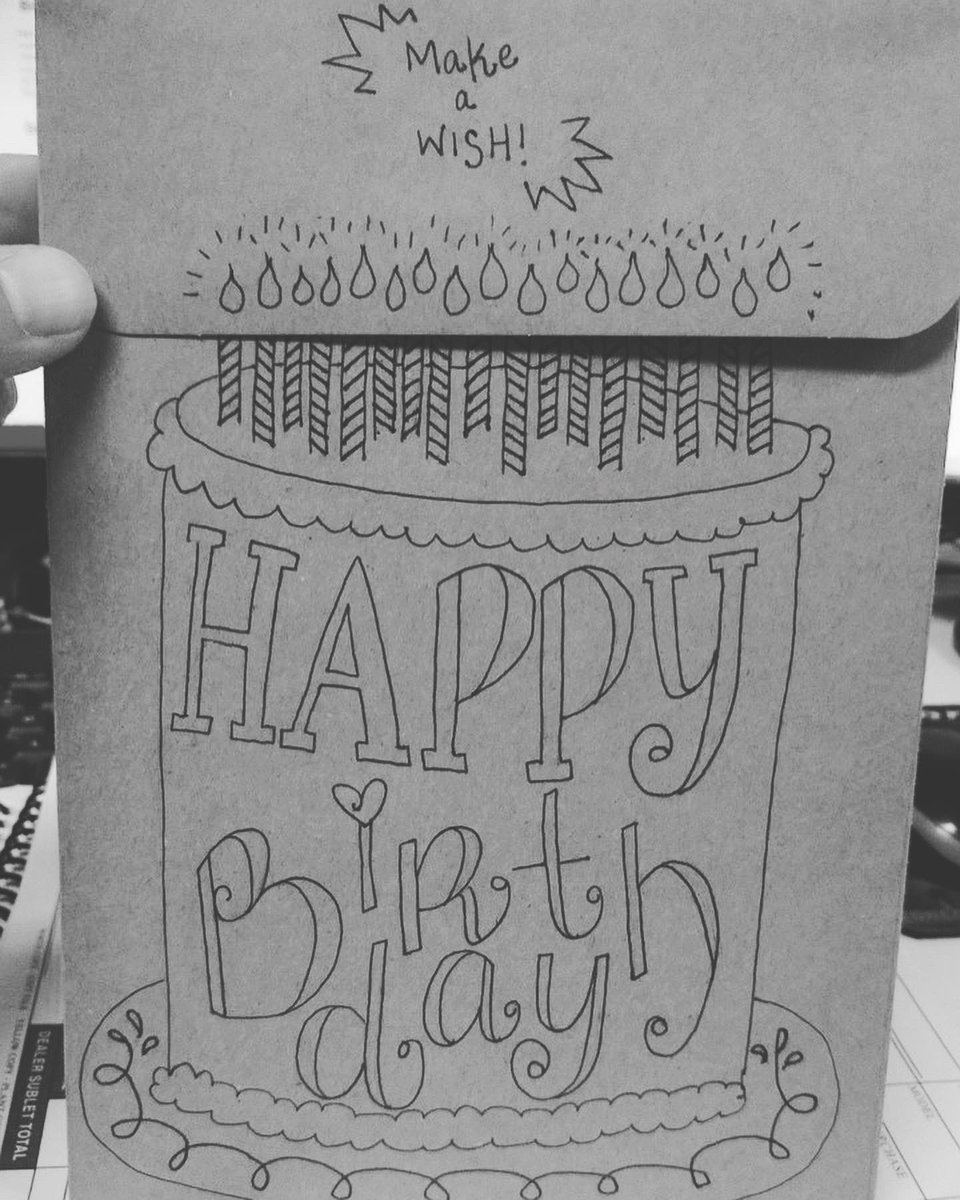 Make
a
WISH!
HAPPY
Birth
day
DEALER SUBLET TOTAL